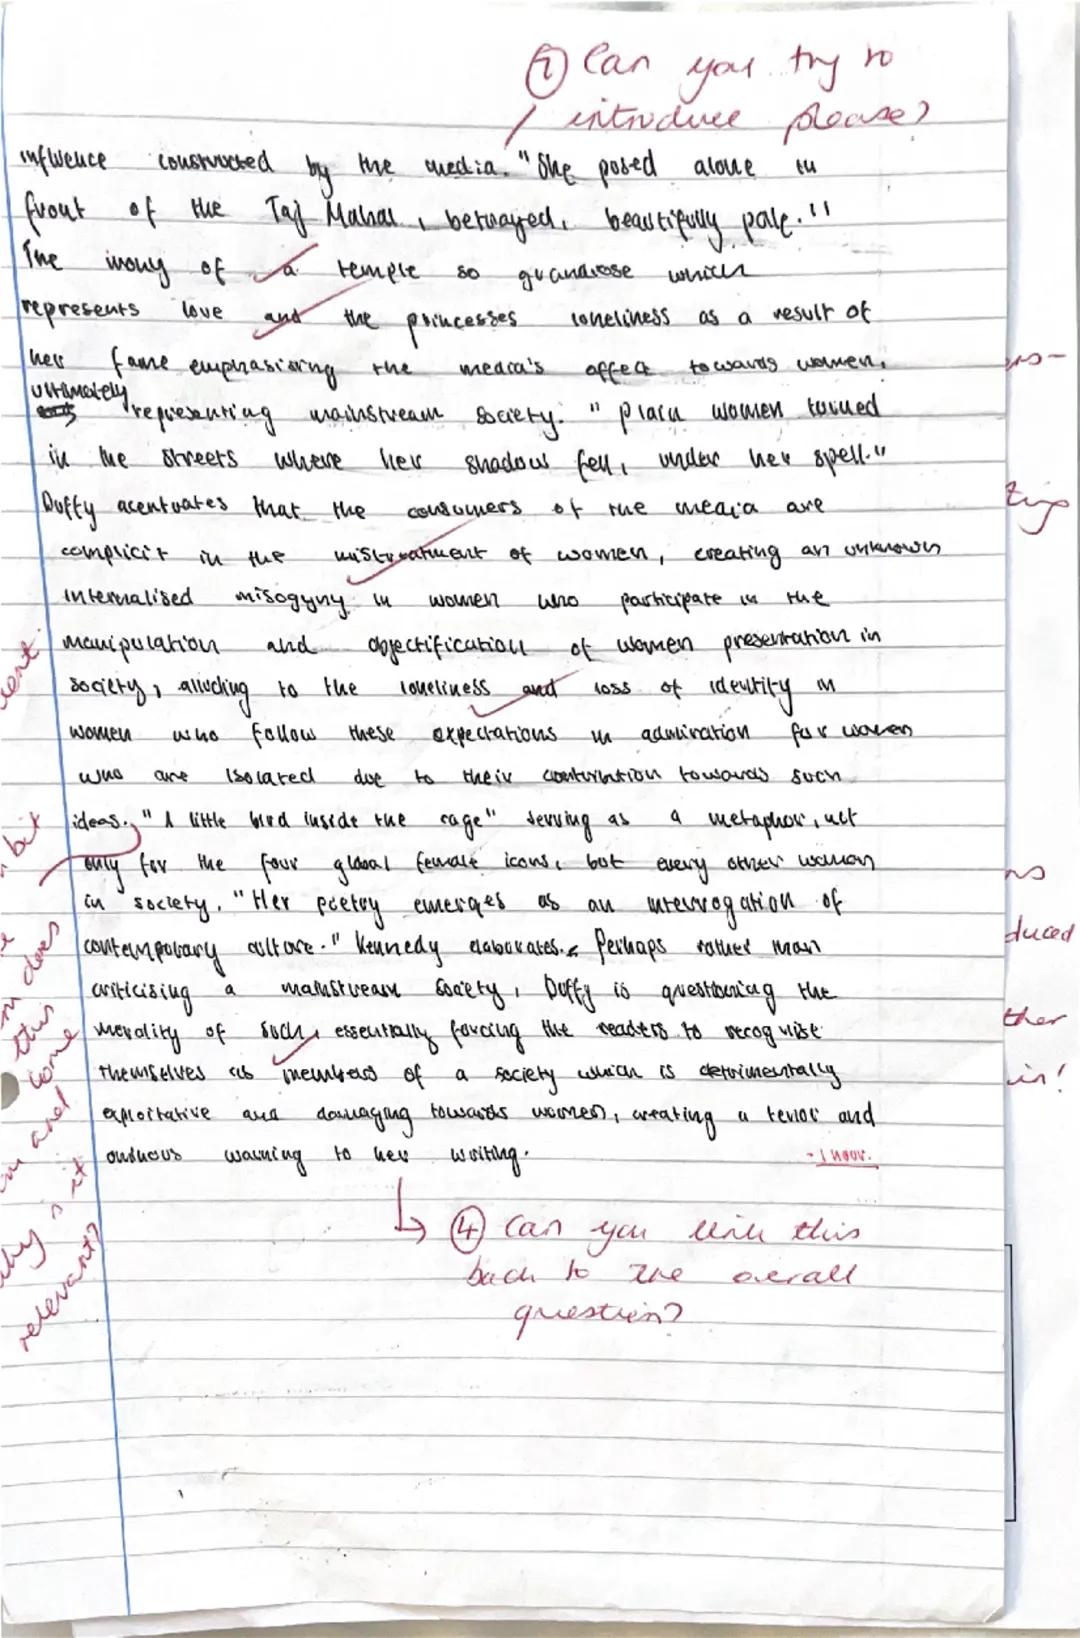 ② Can you try to
introduce please?
influence constructed by the media. "She posed alone in
front of the Taj Mahal, betrayed, beautifully pale."
The irony of a temple so grandiose which
represents love and the princesses loneliness as a result of
her fame emphasising the media's affect towards women,
ultimately representing mainstream society. "Plain women turned
in the streets where her shadow fell, under her spell."
Duffy acentuates that the consumers of the media are
complicit in the mistreatment of women, creating an unknown
internalised misogyny in women who participate in the
manipulation and objectification of women presentation in
society, alluding to the loneliness and loss of identity in
women who follow these expectations in admiration for women
who are isolated due to their contribution towards such
ideas. "A little bird inside the cage" serving as a metaphor, not
only for the four global female icons, but every other woman
in society. "Her poetry emerges as an interrogation of
contemporary culture." Kennedy elaborates. Perhaps rather than
criticising a mainstream society, Duffy is questioning the
morality of such, essentially forcing the readers to recognise
themselves as members of a society which is detrimentally
exploitative and damaging towards women, creating a terior and
onduous warning to her writing.
- 1 hour.
④ Can you link this
back to the overall
question?
bit
does
this
come
and
why is it
relevant?
duced
ther
in!